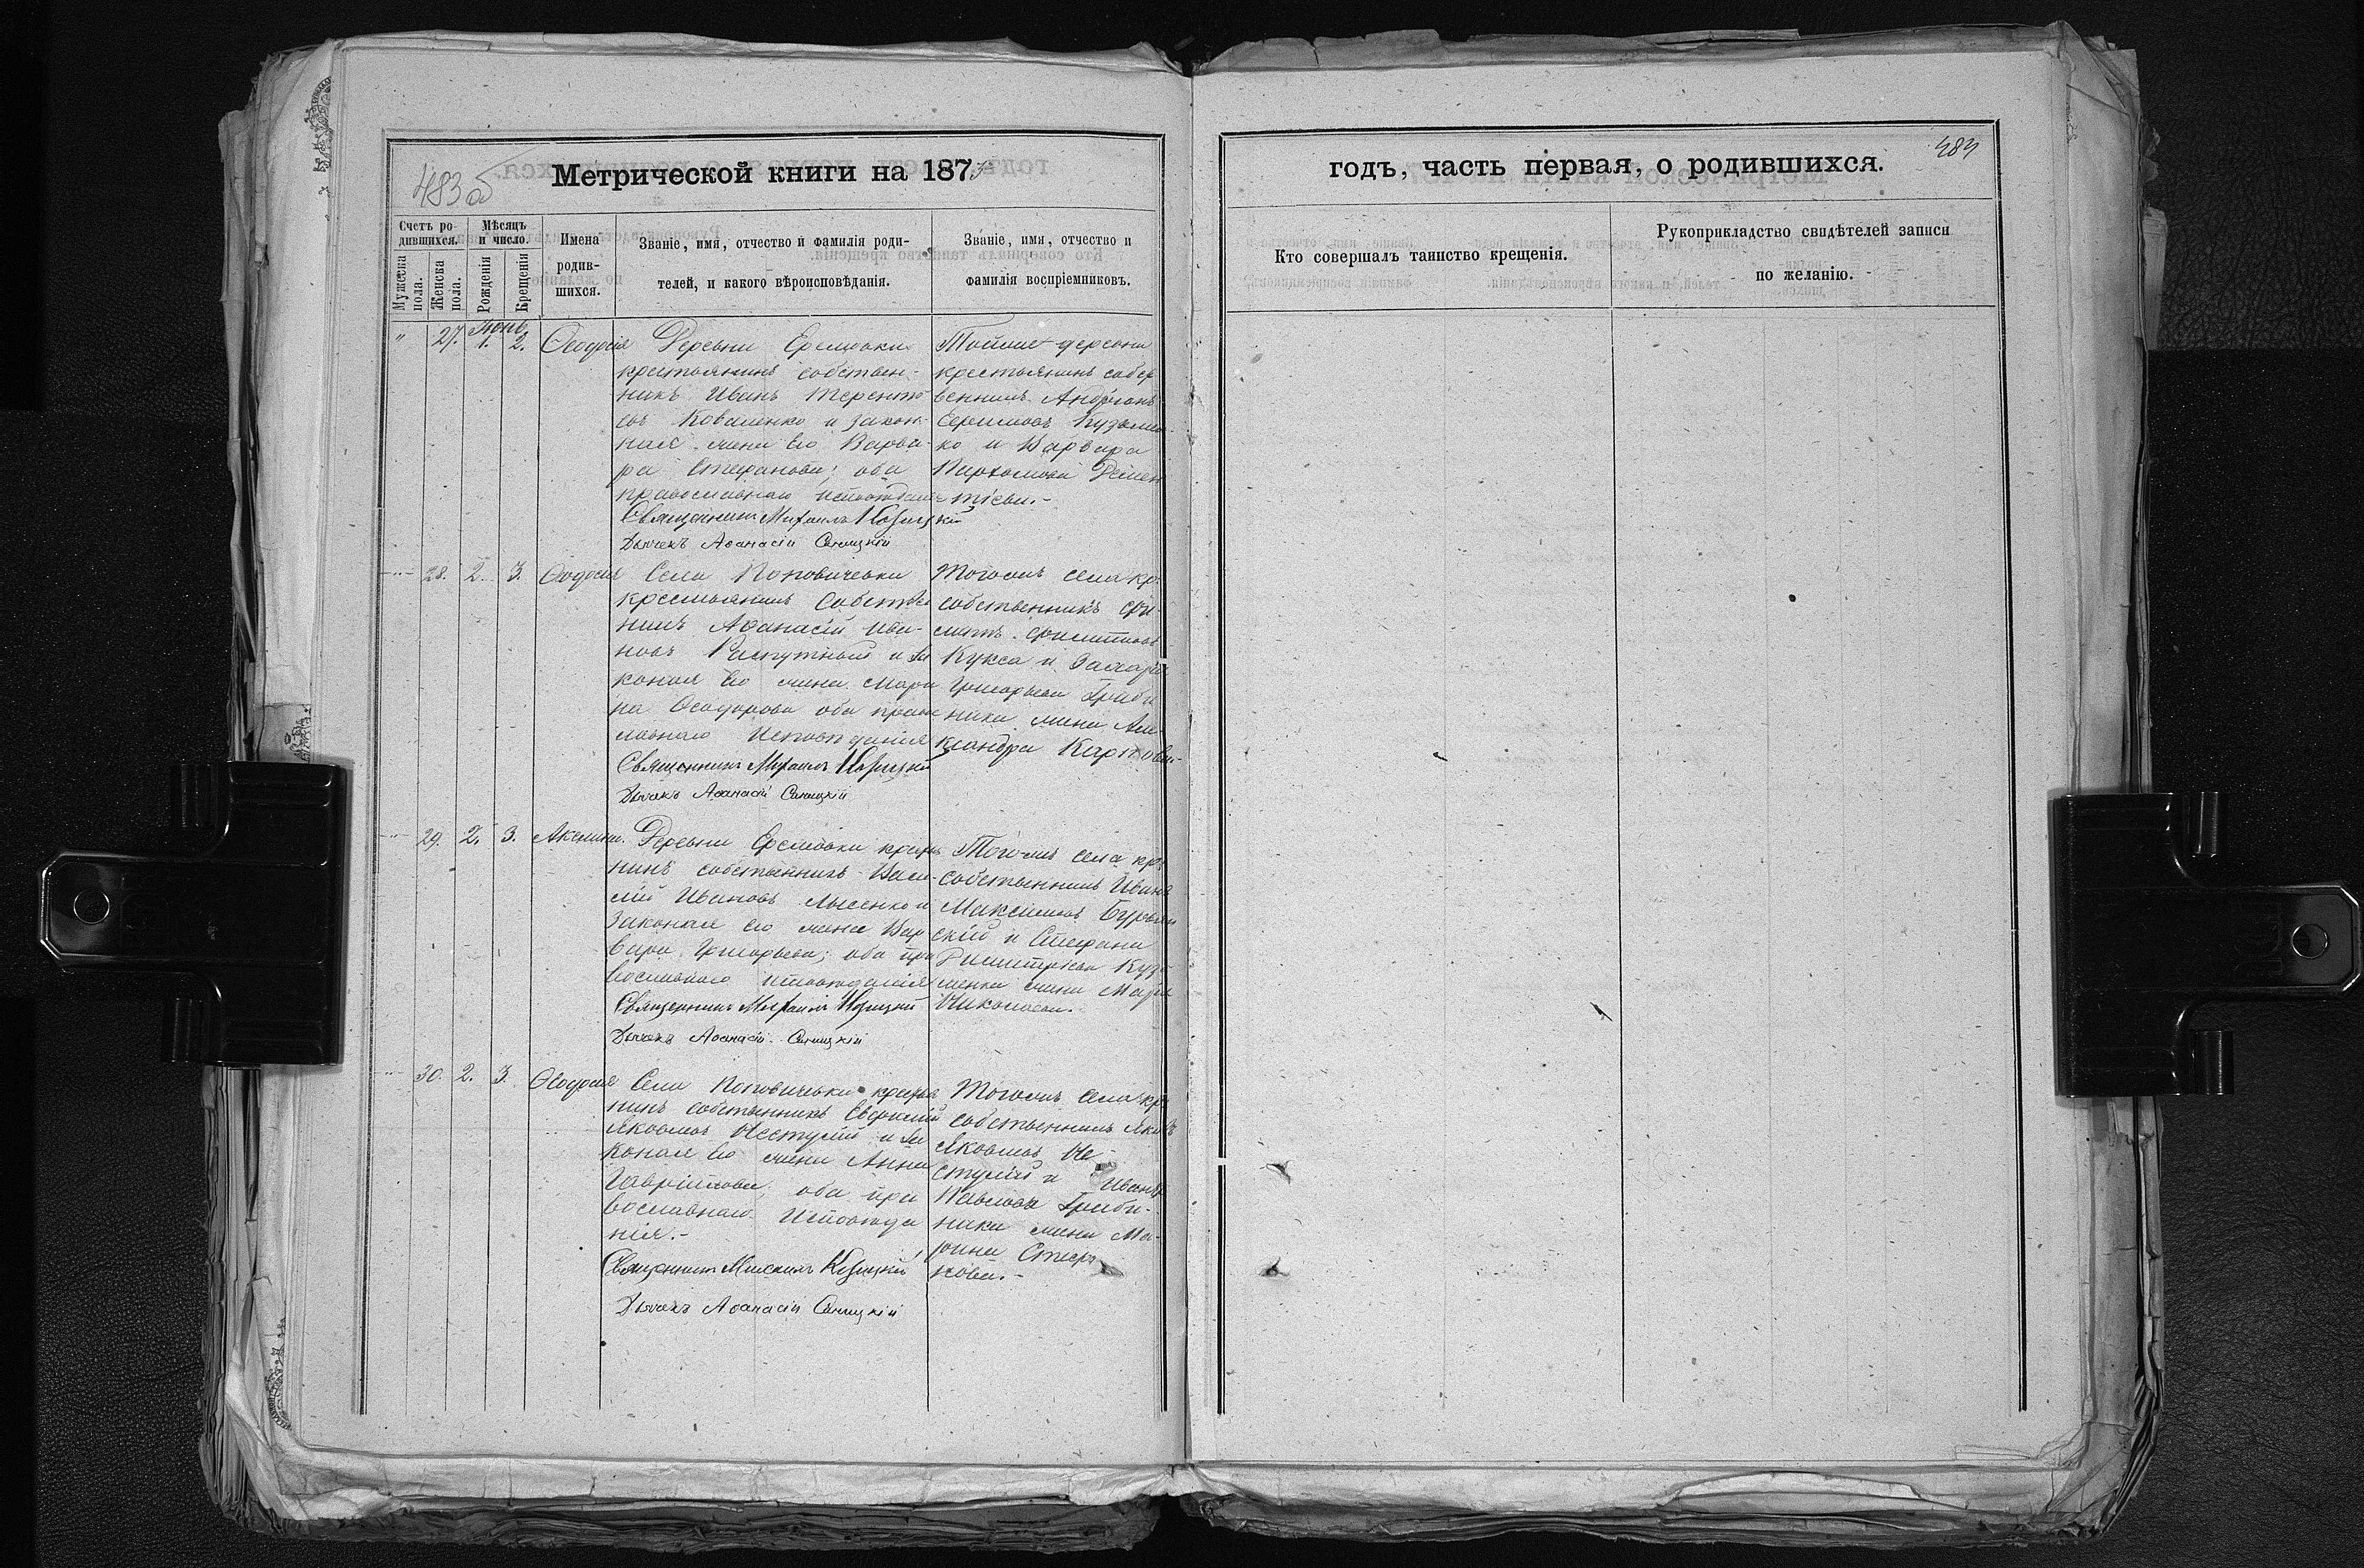 483 об
Метрической книги на 187
Счетъ ро-
дившихся.
Мѣсяцъ
и число.
Мужеска
пола.
Женска
пола.
Рожденія
Крещенія
Имена
родив-
шихся.
Званіе, имя, отчество и фамилія роди-
телей, и какого вѣроисповѣданія.
Званіе, имя, отчество и
фамилія воспріемниковъ.
Іюнь
" 27. 1. 2. Ѳеодосія
Деревни Еремовки
крестьянинъ собствен-
никъ Иванъ Терентіе
въ Коваленко и закон-
ная жена его Варва-
ра Стефанова; оба
православнаго исповѣданія
Священникъ Михаилъ Козицкій
Дьячекъ Аѳанасій Синицкій
Тойже деревни
крестьянинъ собст
венникъ Андріанъ
Ефимовъ Кузьмен-
ко и Варвара
Пархомова Демен
тіева.-
28. 2. 3. Ѳеодосія
Села Поповичевки
крестьянинъ собстве
никъ Аѳанасій Ива-
новъ Распутный и за
коная его жена Мари
на Ѳеодорова оба право
славнаго исповѣданія
Священникъ Михаилъ Козицкій
Дьячекъ Аѳанасій Синицкій
Тогожъ села кр.
собственникъ Фи-
липъ Филиповъ
Кукса и
Григорьева Граби
ника жена Але-
ксандра Карпова.-
29. 2. 3. Акелина.
Деревни Еремовки крестья
нинъ собственникъ Васи-
лій Ивановъ Лысенко и
законая его жена Вар
вара Григорьева; оба пра
вославнаго исповѣданія
Священникъ Михаилъ Козицкій
Дьячекъ Аѳанасій Синицкій
Тогожъ села кр.
собственникъ Иванъ
Максимовъ Бурьян
скій и Стефана
Димитріева Кузь-
менка жена Марія
Николаева.
30. 2. 3. Ѳеодосія
Села Поповичевки крестья
нинъ собственникъ Евфимій
Яковлевъ Нестулій и за
коная его жена Анна
Гавріилова, оба пра
вославнаго исповѣда
нія.-
Священникъ Михаилъ Козицкій
Дьячекъ Аѳанасій Синицкій
Тогожъ села кр.
собственникъ Яковъ
Яковлевъ Не-
стулій и Ивана
Павлова Граби-
ника жена Ма-
рина Стефа
нова.-
годъ, часть первая, о родившихся.
Кто совершалъ таинство крещенія.
Рукоприкладство свидѣтелей записи
по желанію.